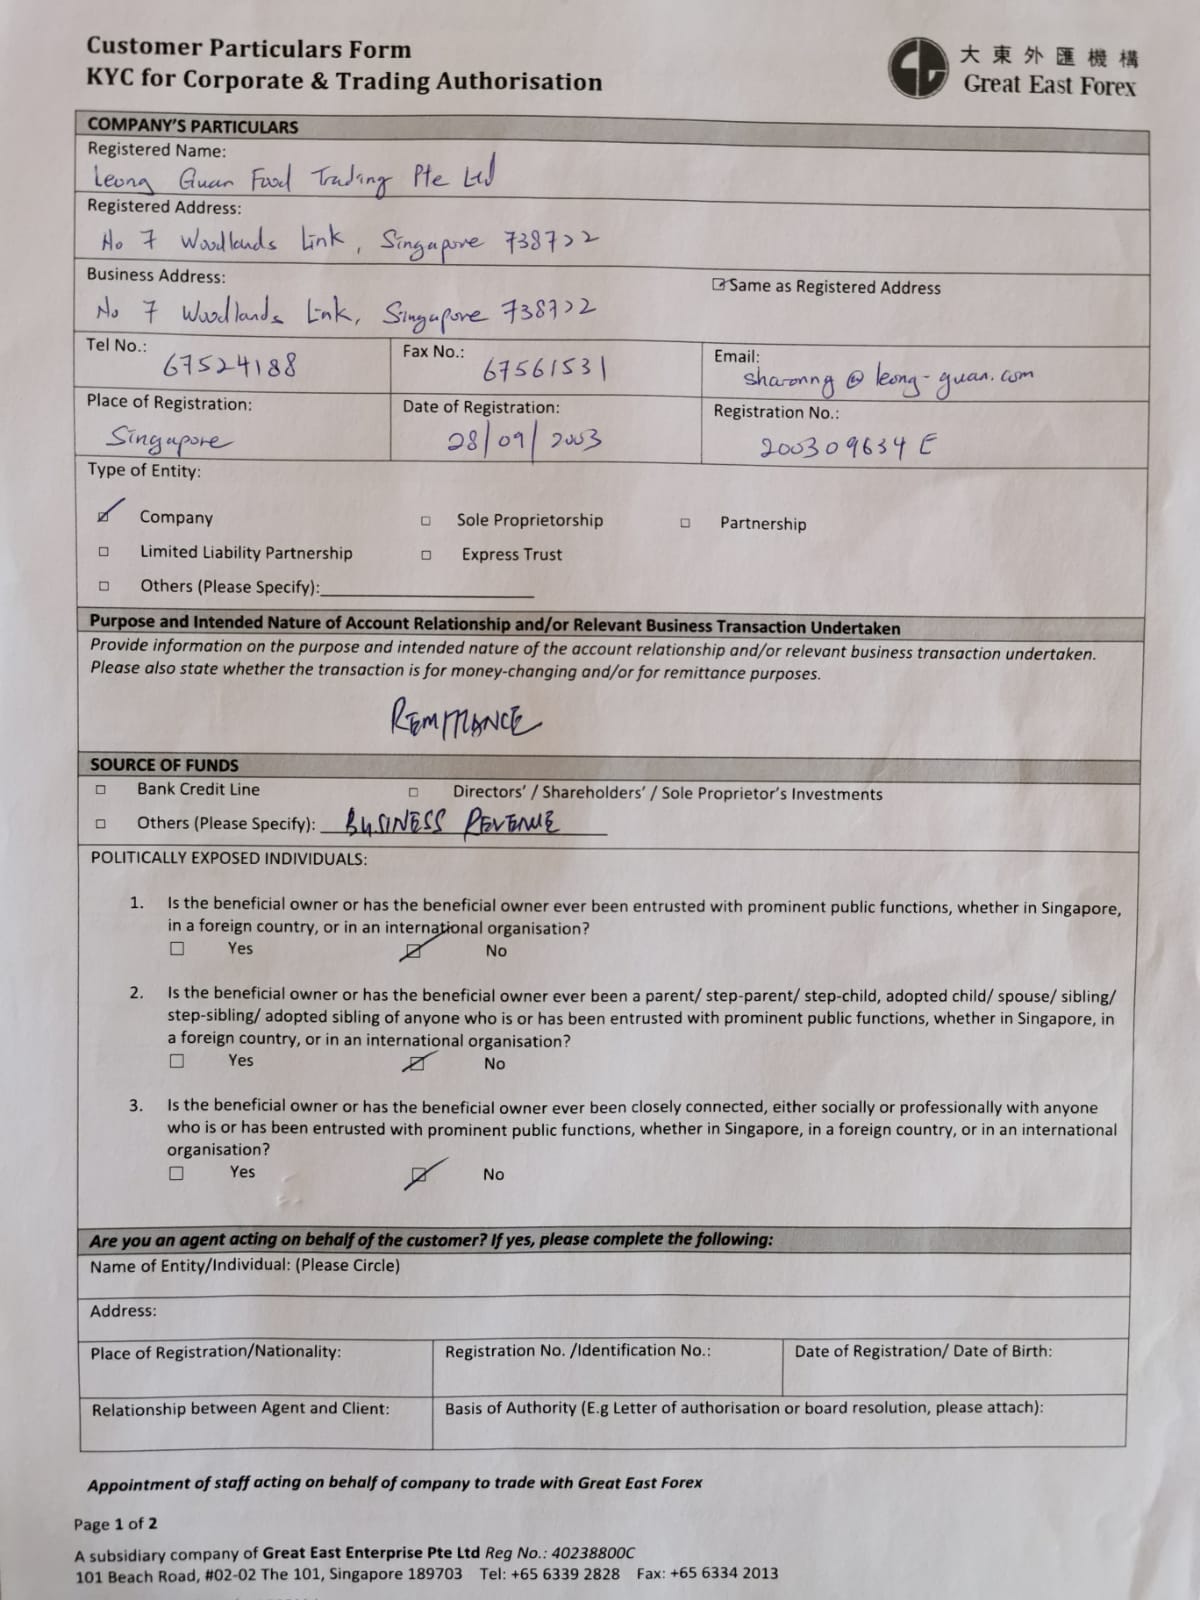 Customer Particulars Form
KYC for Corporate & Trading Authorisation
大東外匯機構
Great East Forex
COMPANY'S PARTICULARS
Registered Name:
Leong Guan Food Trading Pte Ltd
Registered Address:
No 7 Woodlands Link, Singapore 738722
Business Address:
Same as Registered Address
No 7 Woodlands Link, Singapore 738722
Tel No.: 67524188
Fax No.: 67561531
Email: sharonng@leong-guan.com
Place of Registration: Singapore
Date of Registration: 28/09/2003
Registration No.: 200309634E
Type of Entity:
Company Sole Proprietorship Partnership
Limited Liability Partnership Express Trust
Others (Please Specify):
Purpose and Intended Nature of Account Relationship and/or Relevant Business Transaction Undertaken
Provide information on the purpose and intended nature of the account relationship and/or relevant business transaction undertaken.
Please also state whether the transaction is for money-changing and/or for remittance purposes.
REMITTANCE
SOURCE OF FUNDS
Bank Credit Line Directors' / Shareholders' / Sole Proprietor's Investments
Others (Please Specify): BUSINESS REVENUE
POLITICALLY EXPOSED INDIVIDUALS:
1. Is the beneficial owner or has the beneficial owner ever been entrusted with prominent public functions, whether in Singapore,
in a foreign country, or in an international organisation?
Yes No
2. Is the beneficial owner or has the beneficial owner ever been a parent/ step-parent/ step-child, adopted child/ spouse/ sibling/
step-sibling/ adopted sibling of anyone who is or has been entrusted with prominent public functions, whether in Singapore, in
a foreign country, or in an international organisation?
Yes No
3. Is the beneficial owner or has the beneficial owner ever been closely connected, either socially or professionally with anyone
who is or has been entrusted with prominent public functions, whether in Singapore, in a foreign country, or in an international
organisation?
Yes No
Are you an agent acting on behalf of the customer? If yes, please complete the following:
Name of Entity/Individual: (Please Circle)
Address:
Place of Registration/Nationality: Registration No. /Identification No.: Date of Registration/ Date of Birth:
Relationship between Agent and Client: Basis of Authority (E.g Letter of authorisation or board resolution, please attach):
Appointment of staff acting on behalf of company to trade with Great East Forex
Page 1 of 2
A subsidiary company of Great East Enterprise Pte Ltd Reg No.: 40238800C
101 Beach Road, #02-02 The 101, Singapore 189703 Tel: +65 6339 2828 Fax: +65 6334 2013